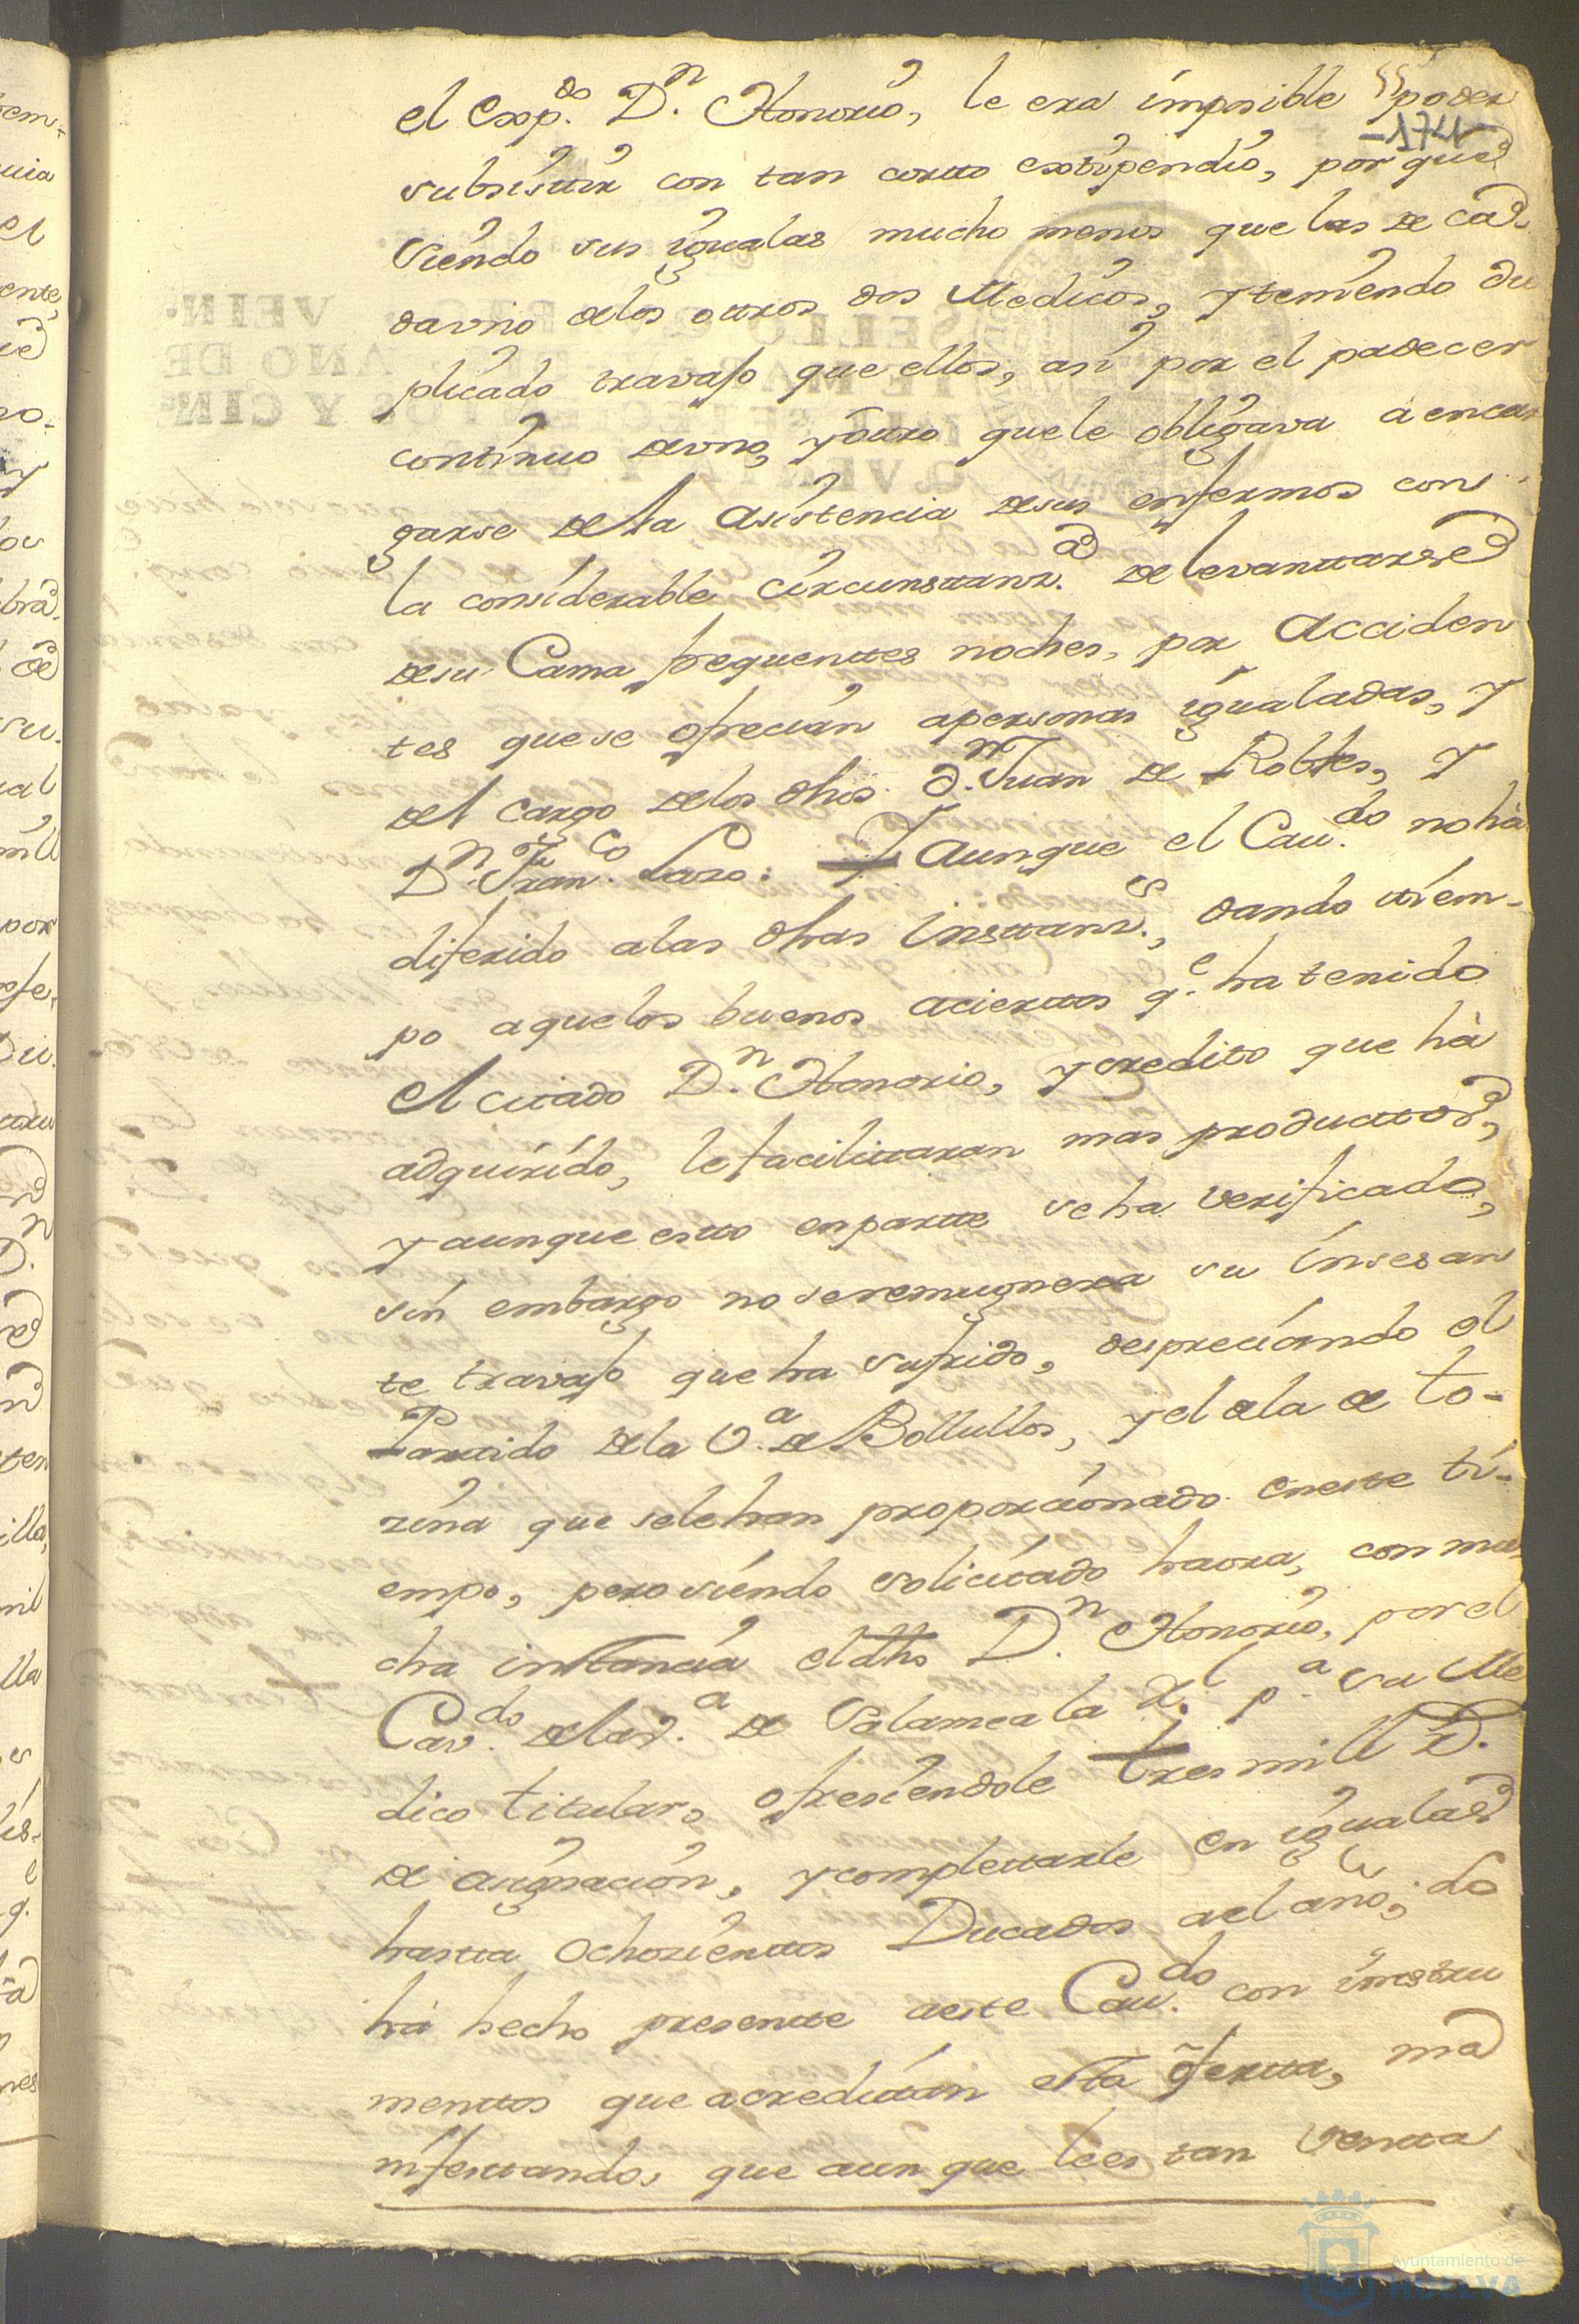 el exp.do D.n Honorio, le era imposible poder
-1741-
subsistir con tan cortto extipendio, por que
siendo sus igualas mucho menos que las de ca-
dauno delos ottros dos Medicos, y teniendo du
plicado travajo que ellos, asi por el padecer
continuo deuno, y ôttro que le obligava a encar
garse de la asistencia desus enfermos con
la considerable circunsttanz.a de levanttarse
desu Cama frequenttes noches, por acciden
tes que se ofrecian apersonas igualadas, y
del cargo delos dhos d.n Juan de Robles, y
D.n Fran.co Lazo: Y aunque el Cau.do no hà
diferido alas dhas insttanz.s, dando tiem-
po aque los buenos aciertos q.e ha tenido
el citado D.n Honorio, y credito que hà
adquirido, le facilittaran mas producttos,
y aunque estto en partte se ha verificado,
sin embargo no se remugnera su insesan
te travajo que ha sufrido, despreciando el
Parttido dela V.a de Bollullos, y el dela de To-
zina que sele han proporcionado eneste ti-
empo, pero siendo solicitado haora, con mu
cha instancia el dho D.n Honorio, por el
Cav.do dela v.a de Salamea la R.l p.a su Me
dico titular, ofresiendole tres mill R.s
de asignacion, y complettarle en igualas
hastta ochozienttos Ducados ael año; lo
hà hecho presentte aeste Cau.do con instru
menttos que acreditan esta ofertta, ma
nifesttando, que aun que le es tan ventta
Ayuntamiento de
HUELVA